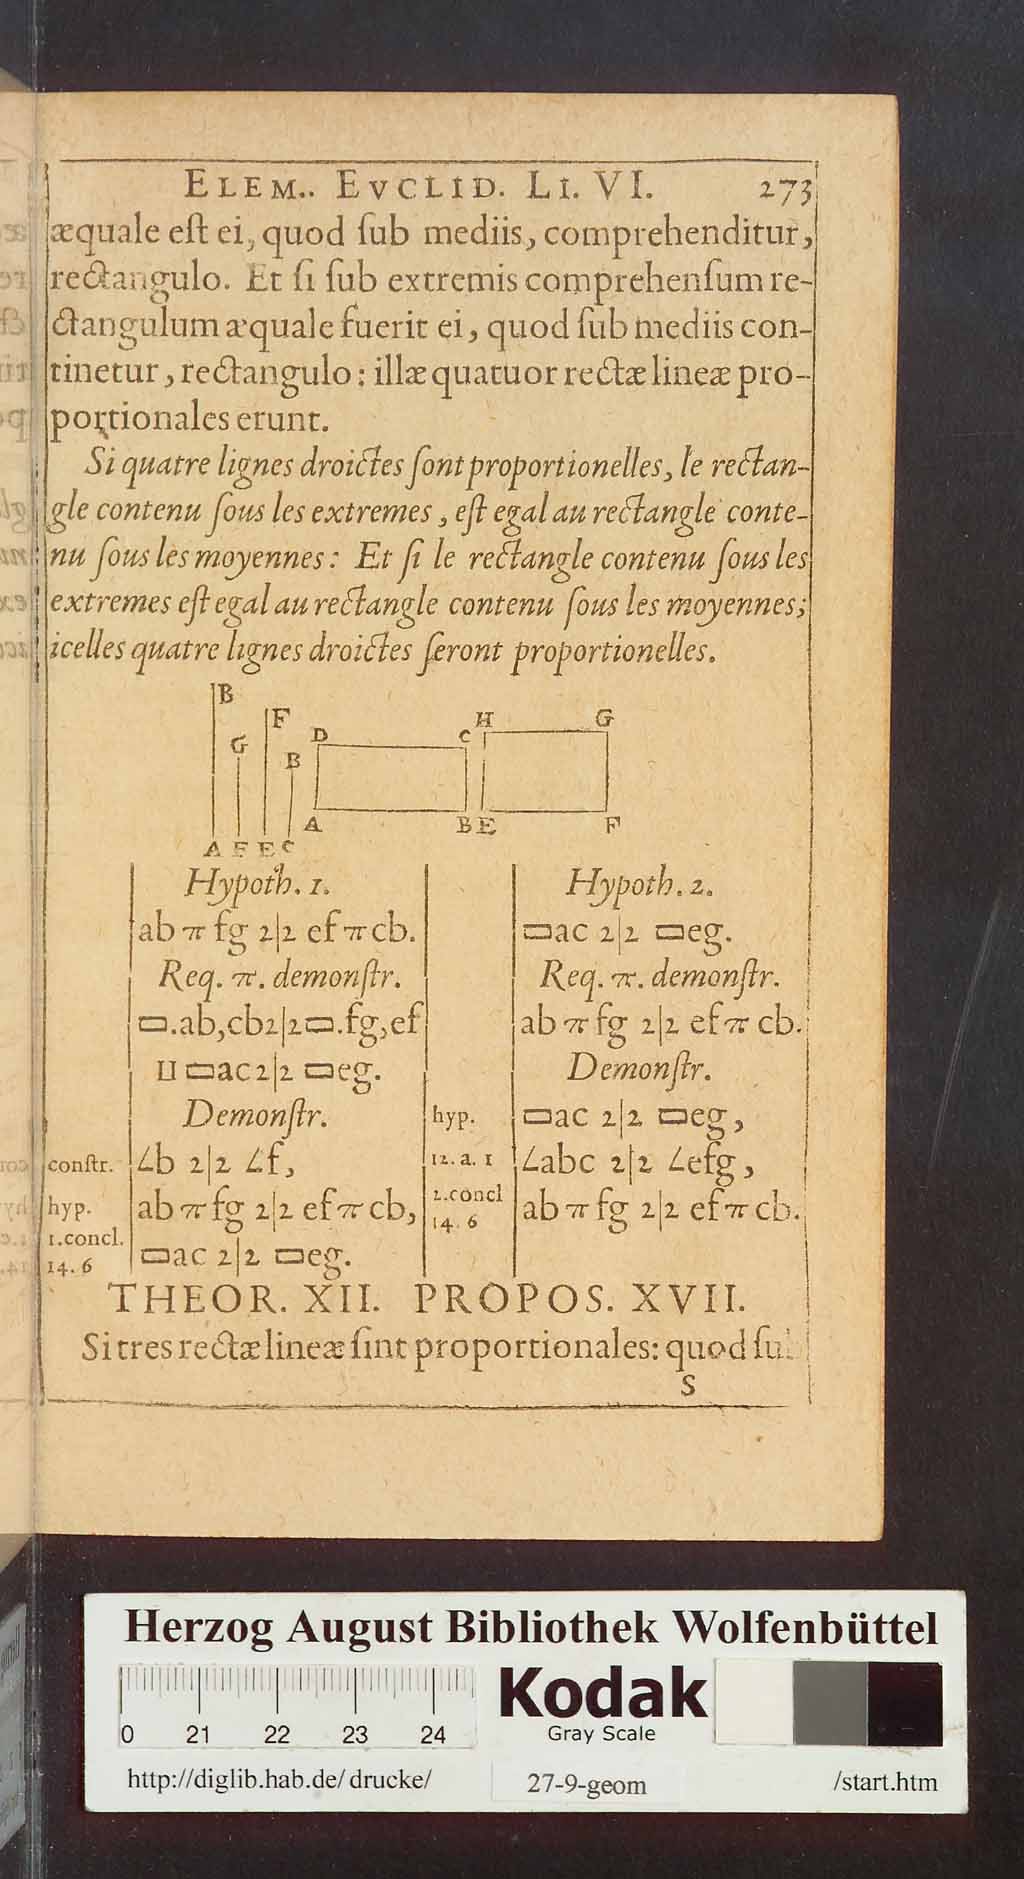 ELEM.. EVCLID. LI. VI. 273
æquale eſt ei, quod ſub mediis, comprehenditur,
rectangulo. Et ſi ſub extremis comprehenſum re-
ctangulum æquale fuerit ei, quod ſub mediis con-
tinetur, rectangulo: illæ quatuor rectæ lineæ pro-
portionales erunt.
Si quatre lignes droictes ſont proportionelles, le rectan-
gle contenu ſous les extremes, eſt egal au rectangle conte-
nu ſous les moyennes: Et ſi le rectangle contenu ſous les
extremes eſt egal au rectangle contenu ſous les moyennes;
icelles quatre lignes droictes ſeront proportionelles.
B
G
F
B
D C H G
A B E F
A F E C
Hypoth. 1.
ab π fg 2|2 ef π cb.
Req. π. demonſtr.
▭.ab,cb 2|2 ▭.fg,ef
⊔ ▭ac 2|2 ▭eg.
Demonſtr.
conſtr. ∠b 2|2 ∠f,
hyp. ab π fg 2|2 ef π cb,
1.concl.
14. 6 ▭ac 2|2 ▭eg.
Hypoth. 2.
▭ac 2|2 ▭eg.
Req. π. demonſtr.
ab π fg 2|2 ef π cb.
Demonſtr.
hyp. ▭ac 2|2 ▭eg,
12. a. 1 ∠abc 2|2 ∠efg,
2.concl
14. 6 ab π fg 2|2 ef π cb.
THEOR. XII. PROPOS. XVII.
Si tres rectæ lineæ ſint proportionales: quod ſub
S
Herzog August Bibliothek Wolfenbüttel
0 21 22 23 24
Kodak
Gray Scale
http://diglib.hab.de/drucke/ 27-9-geom /start.htm